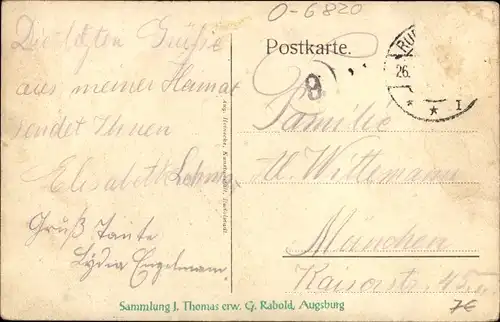 O-6820
Postkarte.
RU
26.
* * I
9
Die letzten Grüße
aus meiner Heimat
sendet Ihnen
Elisabeth
Gruß Tante
Lydia Engelmann.
Familie
M. Wittemann
München
Kaiserstr. 45
Sammlung J. Thomas erw. G. Rabold, Augsburg
7€